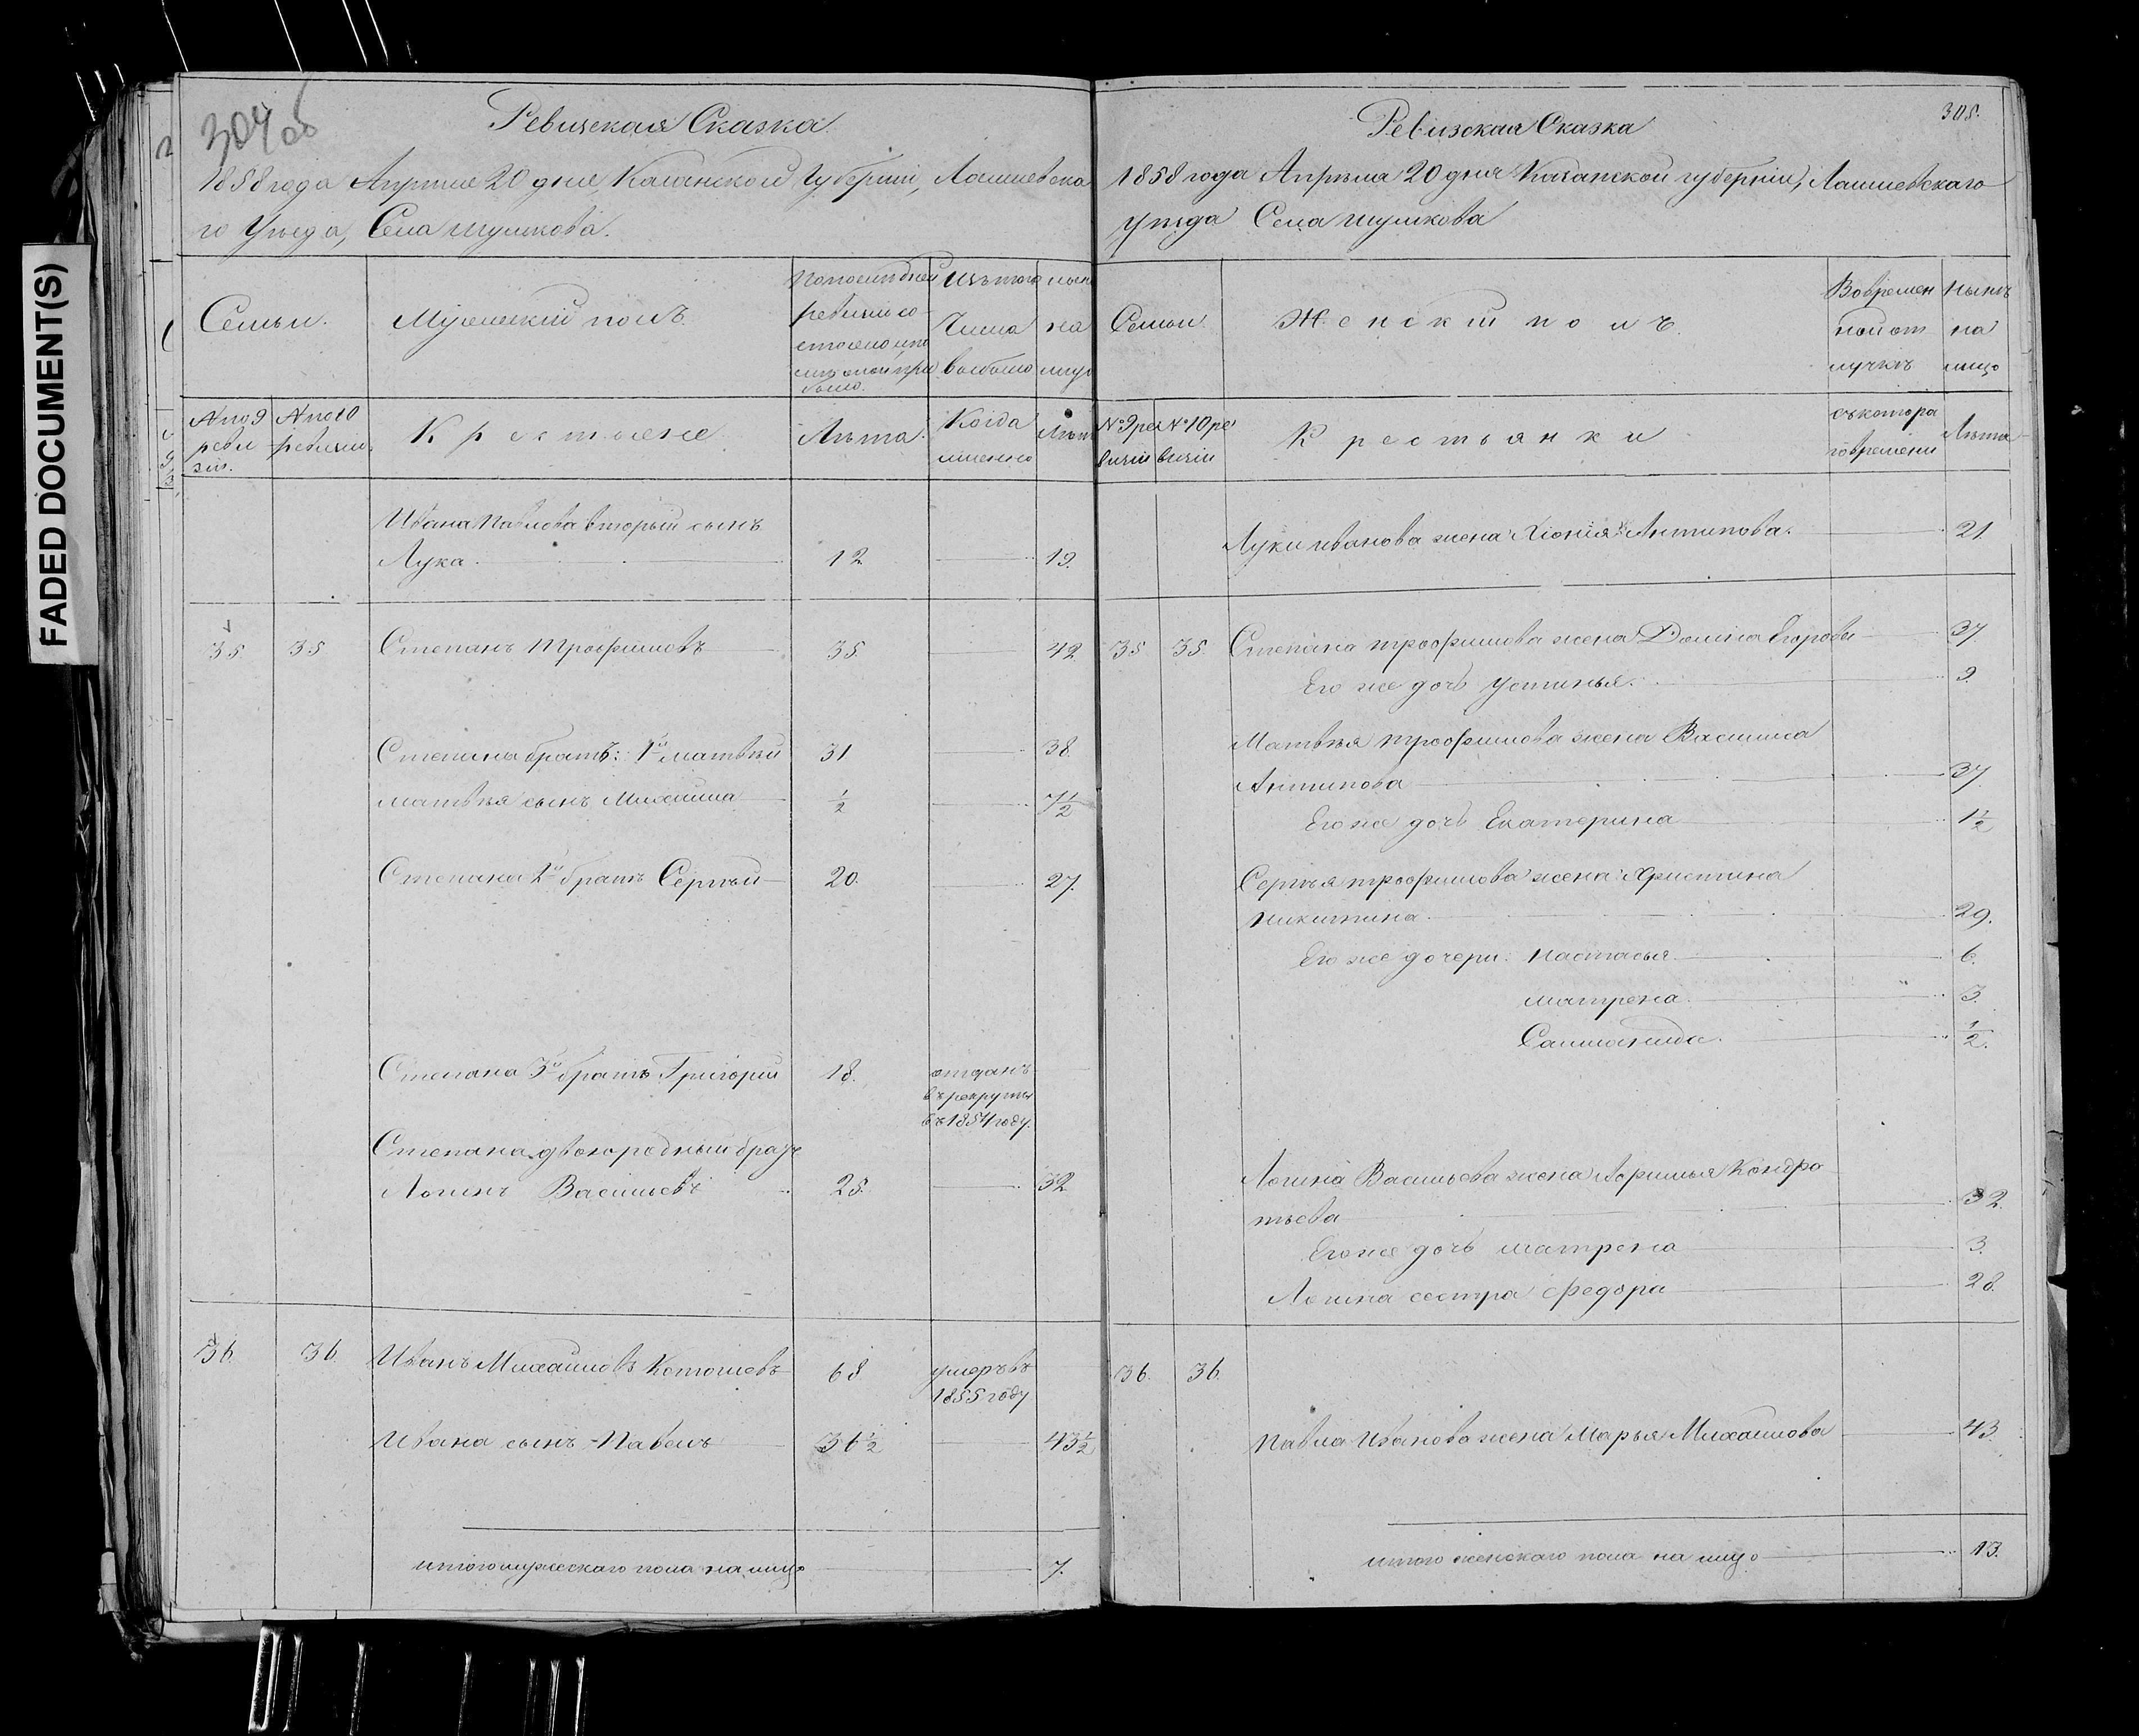 FADED DOCUMENT(S)
304 об
Ревизская Сказка
1858 года Апреля 20 дня, Казанской Губернiи, Лаишевска
го Уезда, Села шумкова.
Семьи.
Мужескiй полъ
По последней
ревизiи со
стояло и по
сле оной при
было.
Изъ того
Числа
выбыло
ныне
на
лицо
№ по 9
реви
зiи.
№ по 10
ревизiи.
Крестьяне
Лета.
Когда
именно
Лета
Ивана Павлова вторый сынъ
Лука. 12 19.
35. 35 Степанъ Трофимовъ 35. 42
Степана братъ: 1й матвей 31 38.
матвея сынъ Михаила 1/2 7 1/2
Степана 2й братъ Сергей 20. 27.
Степана 3й братъ Григорiй 18. отданъ
въ рекруты
въ 1854 году.
Степана двоюродный братъ
Логинъ Васильевъ 25. 32
36. 36. Иванъ Михайловъ Котошевъ 68 умеръ въ
1855 году
Ивана сынъ Павелъ 36 1/2 43 1/2
итого мужескаго пола на лицо 7.
305.
Ревизская Сказка
1858 года Апреля 20 дня Казанской губернiи, Лаишевскаго
уезда Села шумкова
Семьи.
Женскiй полъ.
Во времен
ной от
лучке
Ныне
на
лицо
№ 9 ре
визiи
№ 10 ре
визiи
Крестьянки
съ котора
го времени
Лета
Луки иванова жена Хiонiя Антипова. 21
35 35. Степана трофимова жена Домна Егорова 37
Его же дочь Устинья. 9.
Матвея трофимова жена Василиса
Антипова 37.
Его же дочь Екатерина 1 1/2
Сергея трофимова жена Христина
никитина. 29.
Его же дочери: настасья 6.
матрена. 3.
Саломанида. 1/2.
Логина Васильева жена Афимья Кондра
тьева 32.
Его же дочь матрена 3.
Логина сестра Федора 28.
36. 36.
Павла Иванова жена Марья Михайлова 43.
итого женскаго пола на лицо 13.